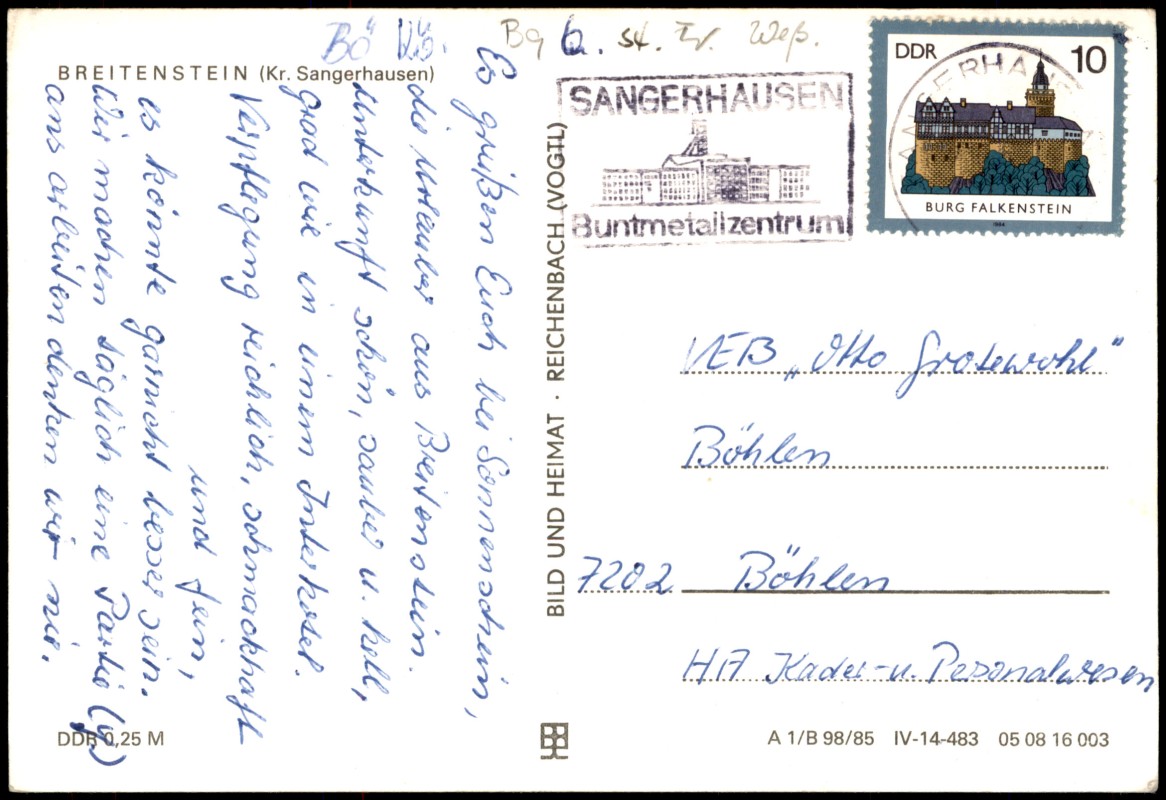 Bö Vö. Bg st. Tr. Weß.
BREITENSTEIN (Kr. Sangerhausen)
Es grüßen Euch bei Sonnenschein,
die Urlauber aus Breitenstein.
Unterkunft schön, sauber u. hell,
grad wie in einem Interhotel.
Verpflegung reichlich, schmackhaft
und fein,
es könnte garnicht besser sein.
Wir machen täglich eine Partie
ans arbeiten denken wir nie.
DDR 0,25 M
BILD UND HEIMAT · REICHENBACH (VOGTL)
SANGERHAUSEN
Buntmetallzentrum
DDR 10
BURG FALKENSTEIN
1984
SANGERHAUSEN
VEB „Otto Grotewohl"
Böhlen
7202 Böhlen
HA Kader- u. Personalwesen
A 1/B 98/85 IV-14-483 05 08 16 003